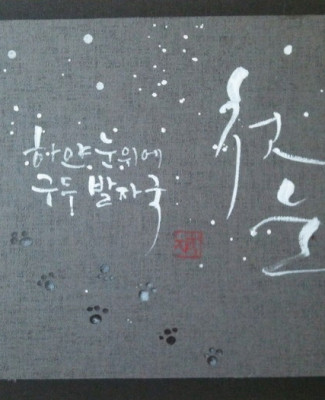 첫눈
하얀눈위에
구두발자국